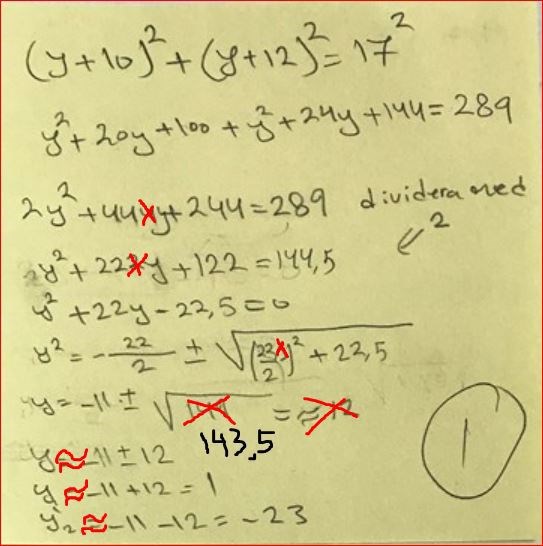 (y+10)²+(y+12)²=17²
y²+20y+100+y²+24y+144=289
2y²+44y+244=289 dividera med 2
y²+22y+122=144,5
y²+22y-22,5=0
y²=-22/2 ± √((22/2)²+22,5)
y=-11± √ =≈12
143,5
y≈-11±12
y≈-11+12=1
y₂≈-11-12=-23
1